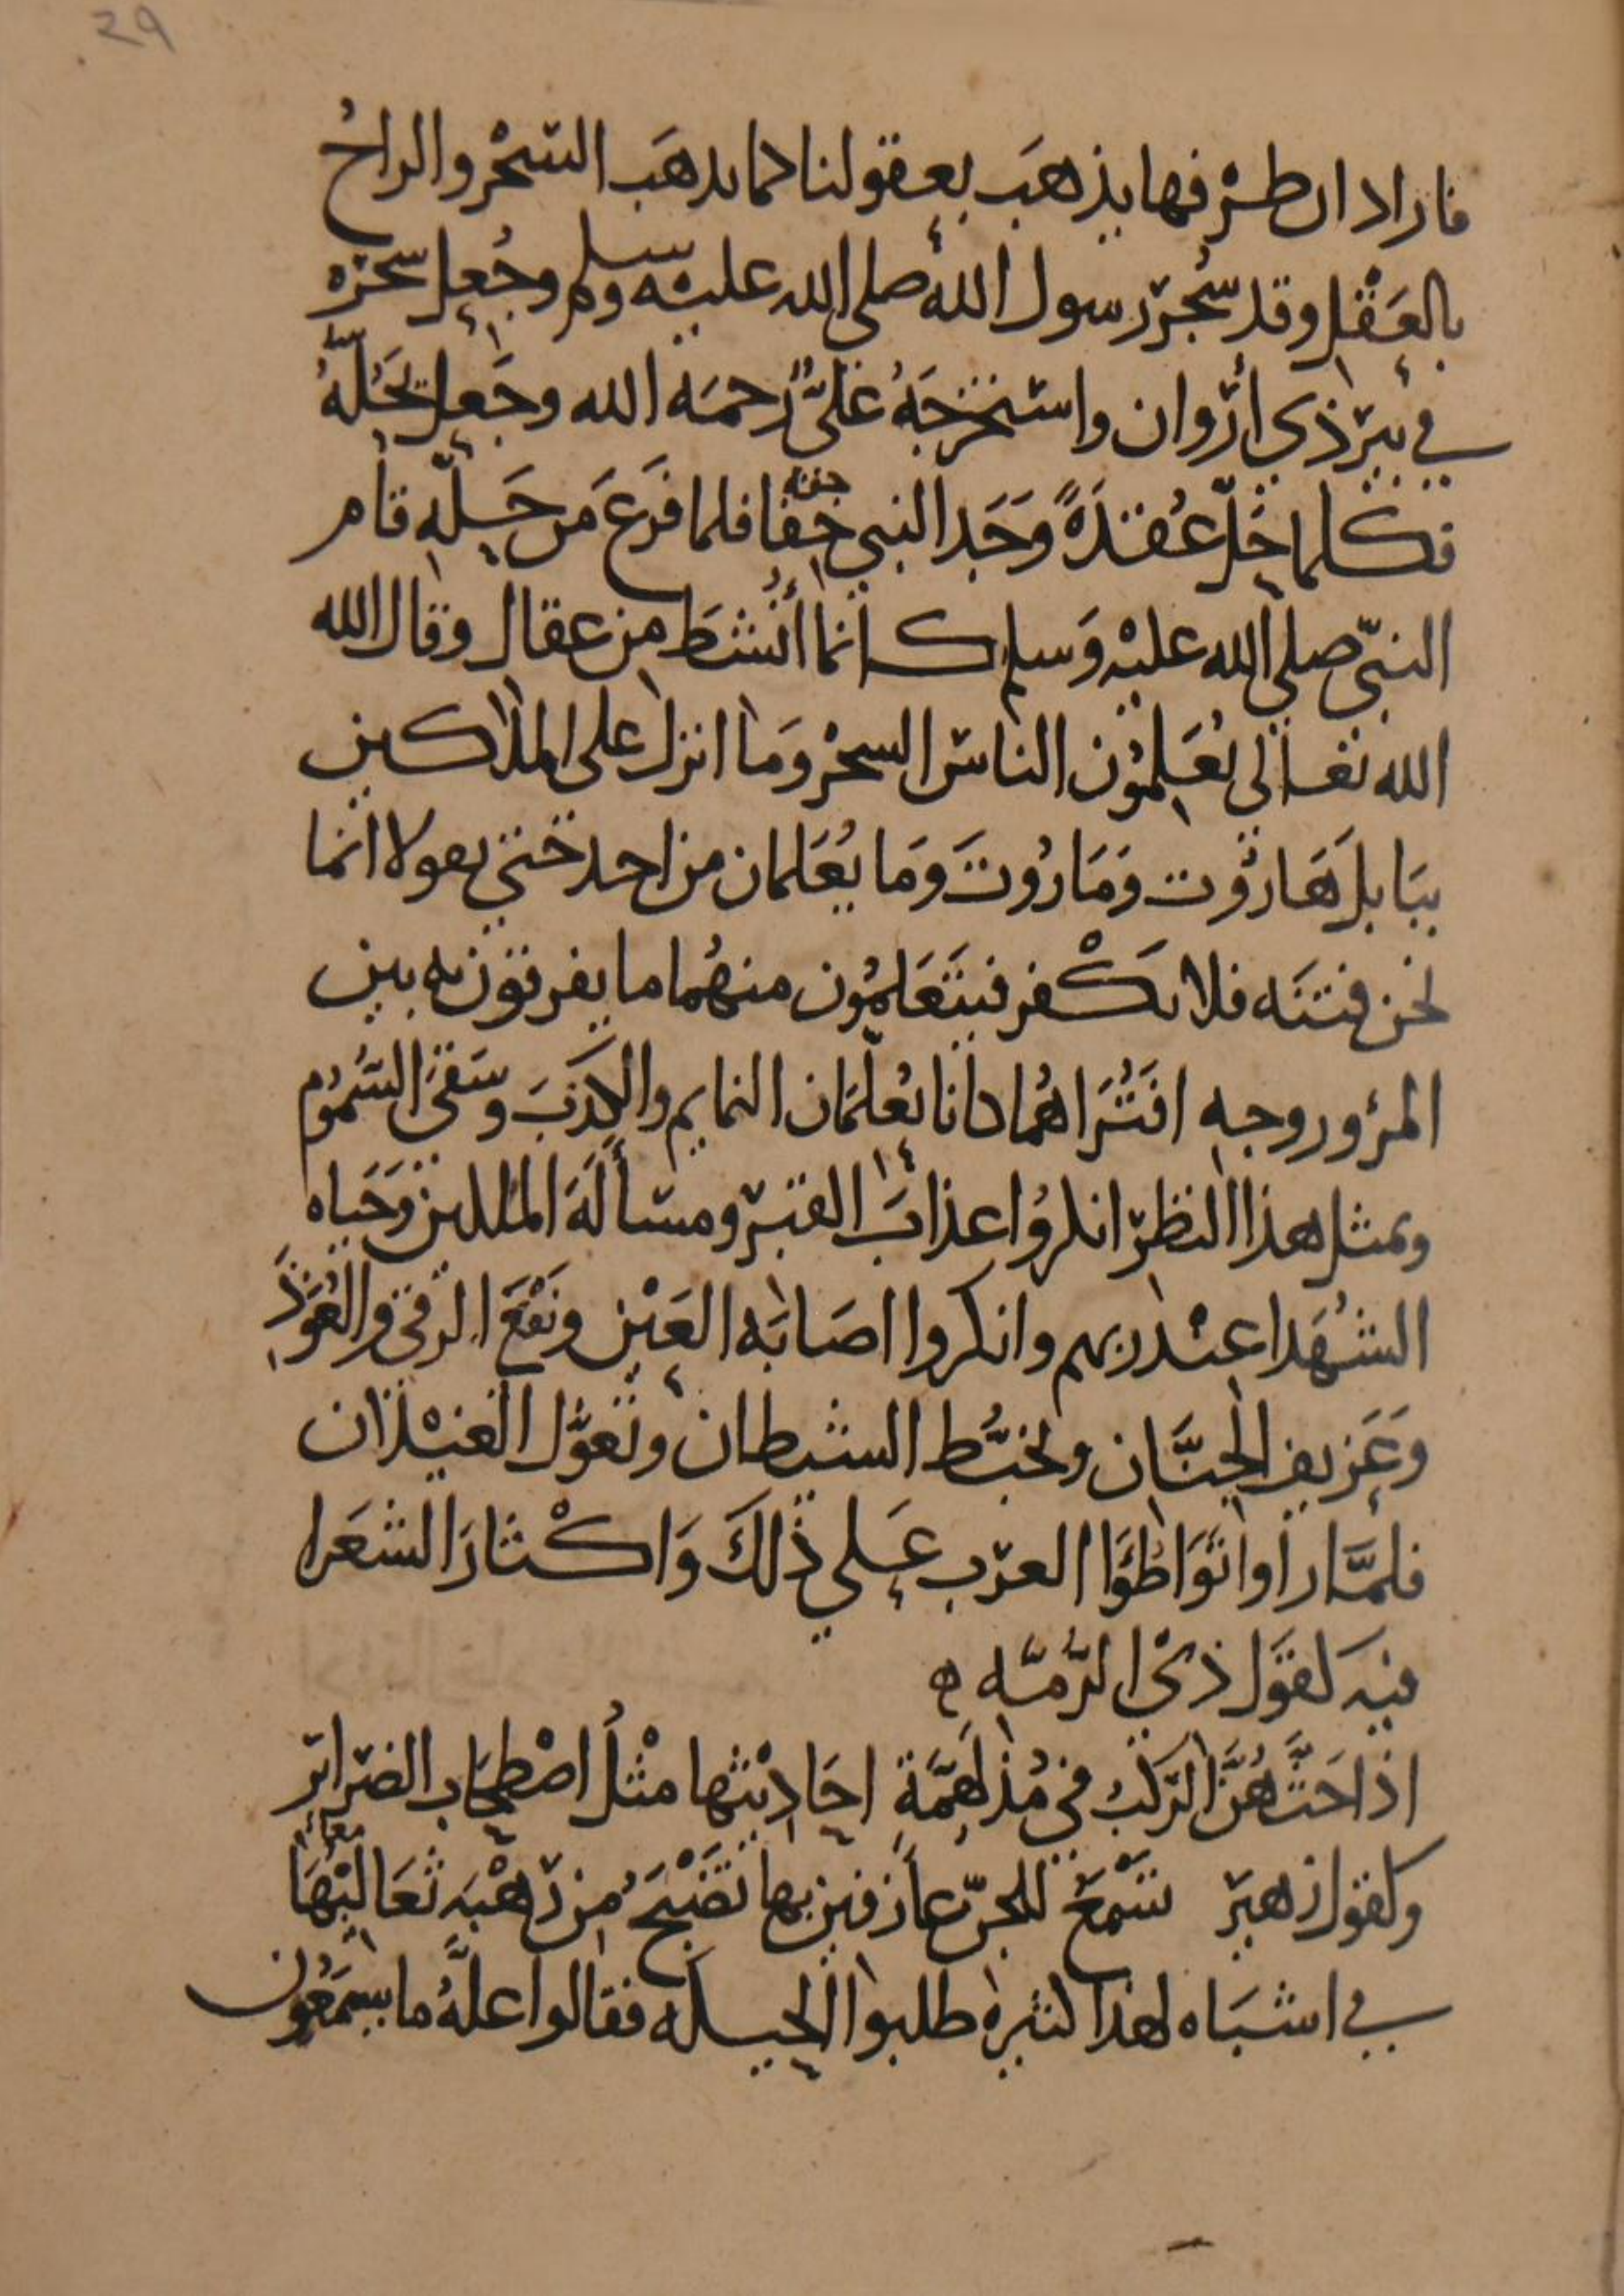 29
فاراد ان طرفها يذهب بعقولنا كما يذهب السحر والراح
بالعقل وقد سُحِر رسول الله صلى الله عليه وسلم وجُعِل سحره
في بير ذي اروان واستخرجه عليّ رحمه الله وجعل يحلّه
فكلما حلّ عقدةً وَجَد النبي خفا خفة فلما فرغ من حلّه قام
النبيّ صلي الله عليه وسلم كانما أُنشط من عقال وقال الله
الله تعالى يعلمون الناس السحر وما انزل على الملاكين
ببابل هاروت وماروت وما يعلمان من احد حتي يقولا انما
نحن فتنه فلا تكفر فيتعلمون منهما ما يفرقون به بين
المرؤ وزوجه افتُراهما كانا يعلّمان النمايم والكذب وسقي السموم
وبمثل هذا النظر انكروا عذاب القبر ومسألة الملكين وحياه
الشهدا عند ربهم وانكروا اصابه العين ونفع الرقي والعُوَذ
وعزيف الجنّان وتخبُّط الشيطان وتغوُّل الغيلان
فلمّا راوا تواطؤا العرب علي ذلك واكثار الشعرا
فيه كقول ذي الرّمّه ه
اذا حثَّهُنَّ الركب في مُدلَهِمَّةٍ احاديثها مثلُ اصطخاب الضراير
وكقول زهير تسمع للجنّ عازفين بها تضبح من رهبه ثعالبها
في اشباه لهذا كثيره طلبوا الحيله فقالوا علّه ما يسمعون